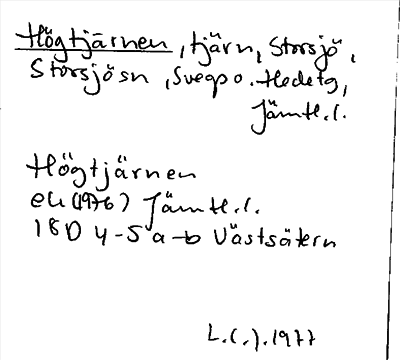 Högtjärnen, tjärn, Storsjö,
Storsjö sn, Svegs o. Hede tg,
Jämtl.l.
Högtjärnen
ek (1976) Jämtl.l.
18D 4-5 a-b Västsätern
L.(.).1977